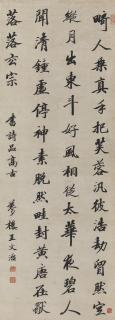 畸人乘真手把芙蓉汎彼浩劫窅然空
縱月出東斗好風相從太華夜碧人
聞清鍾虛佇神素脫然畦封黃唐在獨
落落玄宗
書詩品高古
夢樓王文治